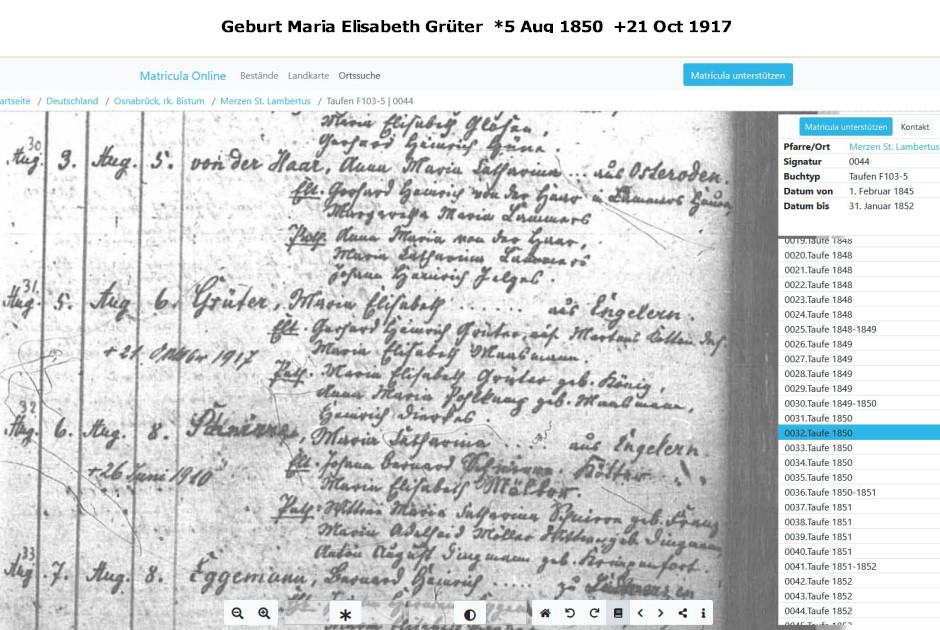 Geburt Maria Elisabeth Grüter *5 Aug 1850 +21 Oct 1917
Matricula Online Bestände Landkarte Ortssuche Matricula unterstützen
artseite / Deutschland / Osnabrück, rk. Bistum / Merzen St. Lambertus / Taufen F103-5 | 0044
Maria Elisabeth
Gerhard Heinrich
30
Aug. 3. Aug. 5. von der Haar, Anna Maria Catharina ... aus Osteroden.
Elt. Gerhard Heinrich von der Haar in
Margaretha Maria Lammers
Path. Anna Maria von der Haar,
Maria Catharina Lammers
Johann Heinrich
31.
Aug. 5. Aug 6. Grüter, Maria Elisabeth ...... aus Engelern.
Elt. Gerhard Heinrich Grüter, auf
+ 21. Oktober 1917 Maria Elisabeth Maasmann.
Path. Maria Elisabeth Grüter geb. König,
Anna Maria geb. Maasmann,
Heinrich
32
Aug. 6. Aug. 8. Maria Catharina .... aus Engelern
Elt. Johann Bernard
+26 Juni 1910 Maria Elisabeth
Path. Maria Catharina geb.
Maria Adelheid Möller geb.
Anton August geb.
33
Aug. 7. Aug. 8. Eggemann, Bernard Heinrich .... zu
Matricula unterstützen Kontakt
Pfarre/Ort Merzen St. Lambertus
Signatur 0044
Buchtyp Taufen F103-5
Datum von 1. Februar 1845
Datum bis 31. Januar 1852
0019.Taufe 1848
0020.Taufe 1848
0021.Taufe 1848
0022.Taufe 1848
0023.Taufe 1848
0024.Taufe 1848
0025.Taufe 1848-1849
0026.Taufe 1849
0027.Taufe 1849
0028.Taufe 1849
0029.Taufe 1849
0030.Taufe 1849-1850
0031.Taufe 1850
0032.Taufe 1850
0033.Taufe 1850
0034.Taufe 1850
0035.Taufe 1850
0036.Taufe 1850-1851
0037.Taufe 1851
0038.Taufe 1851
0039.Taufe 1851
0040.Taufe 1851
0041.Taufe 1851-1852
0042.Taufe 1852
0043.Taufe 1852
0044.Taufe 1852
0045.Taufe 1852